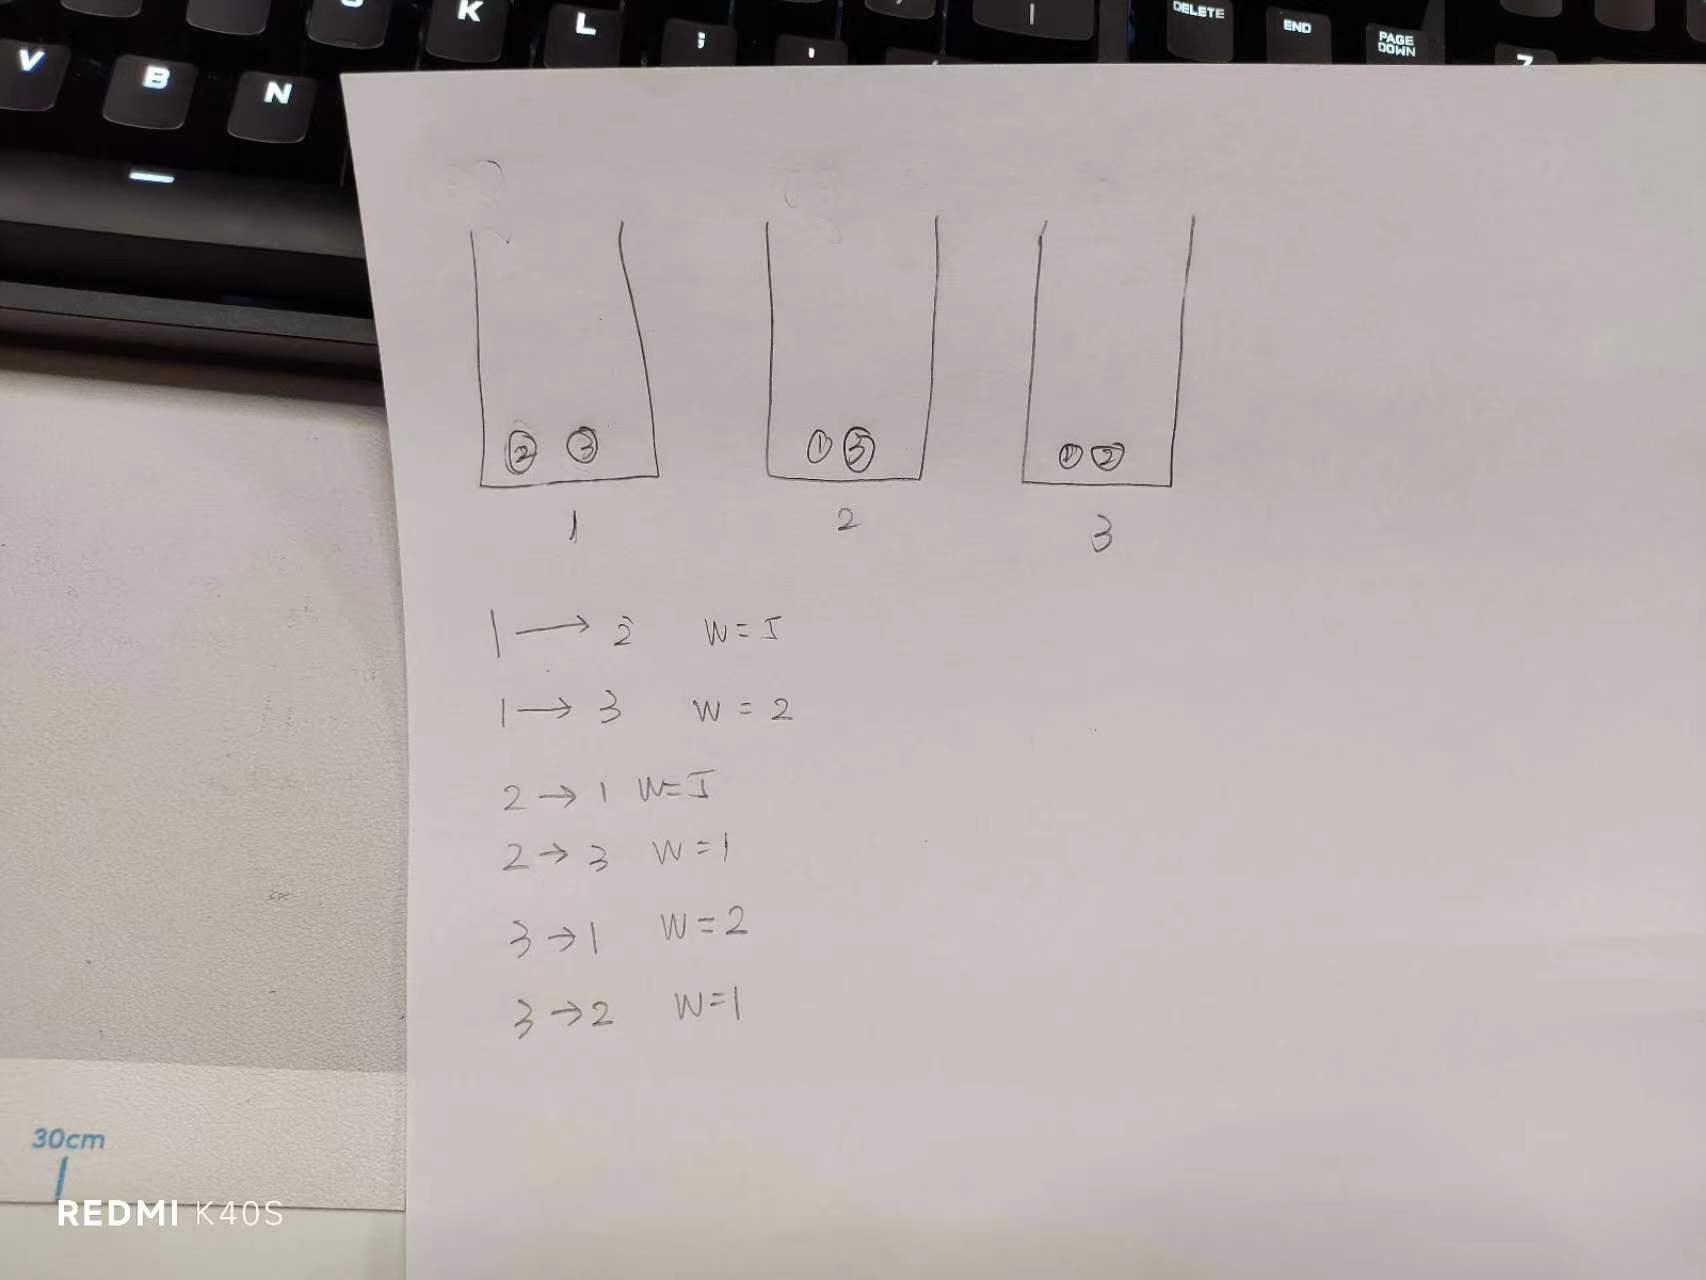 K
L
;
'
DELETE
END
PAGE DOWN
V
B
N
② ③
① ③
① ②
1
2
3
1 → 2 W = I
1 → 3 W = 2
2 → 1 W = I
2 → 3 W = 1
3 → 1 W = 2
3 → 2 W = 1
30cm
REDMI K40S